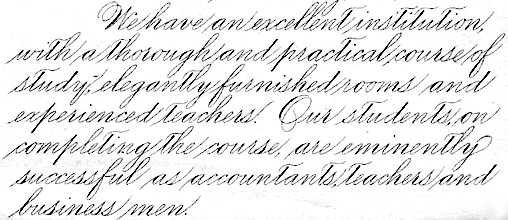 We have an excellent institution,
with a thorough and practical course of
study, elegantly furnished rooms and
experienced teachers. Our students, on
completing the course, are eminently
successful as accountants, teachers and
business men.